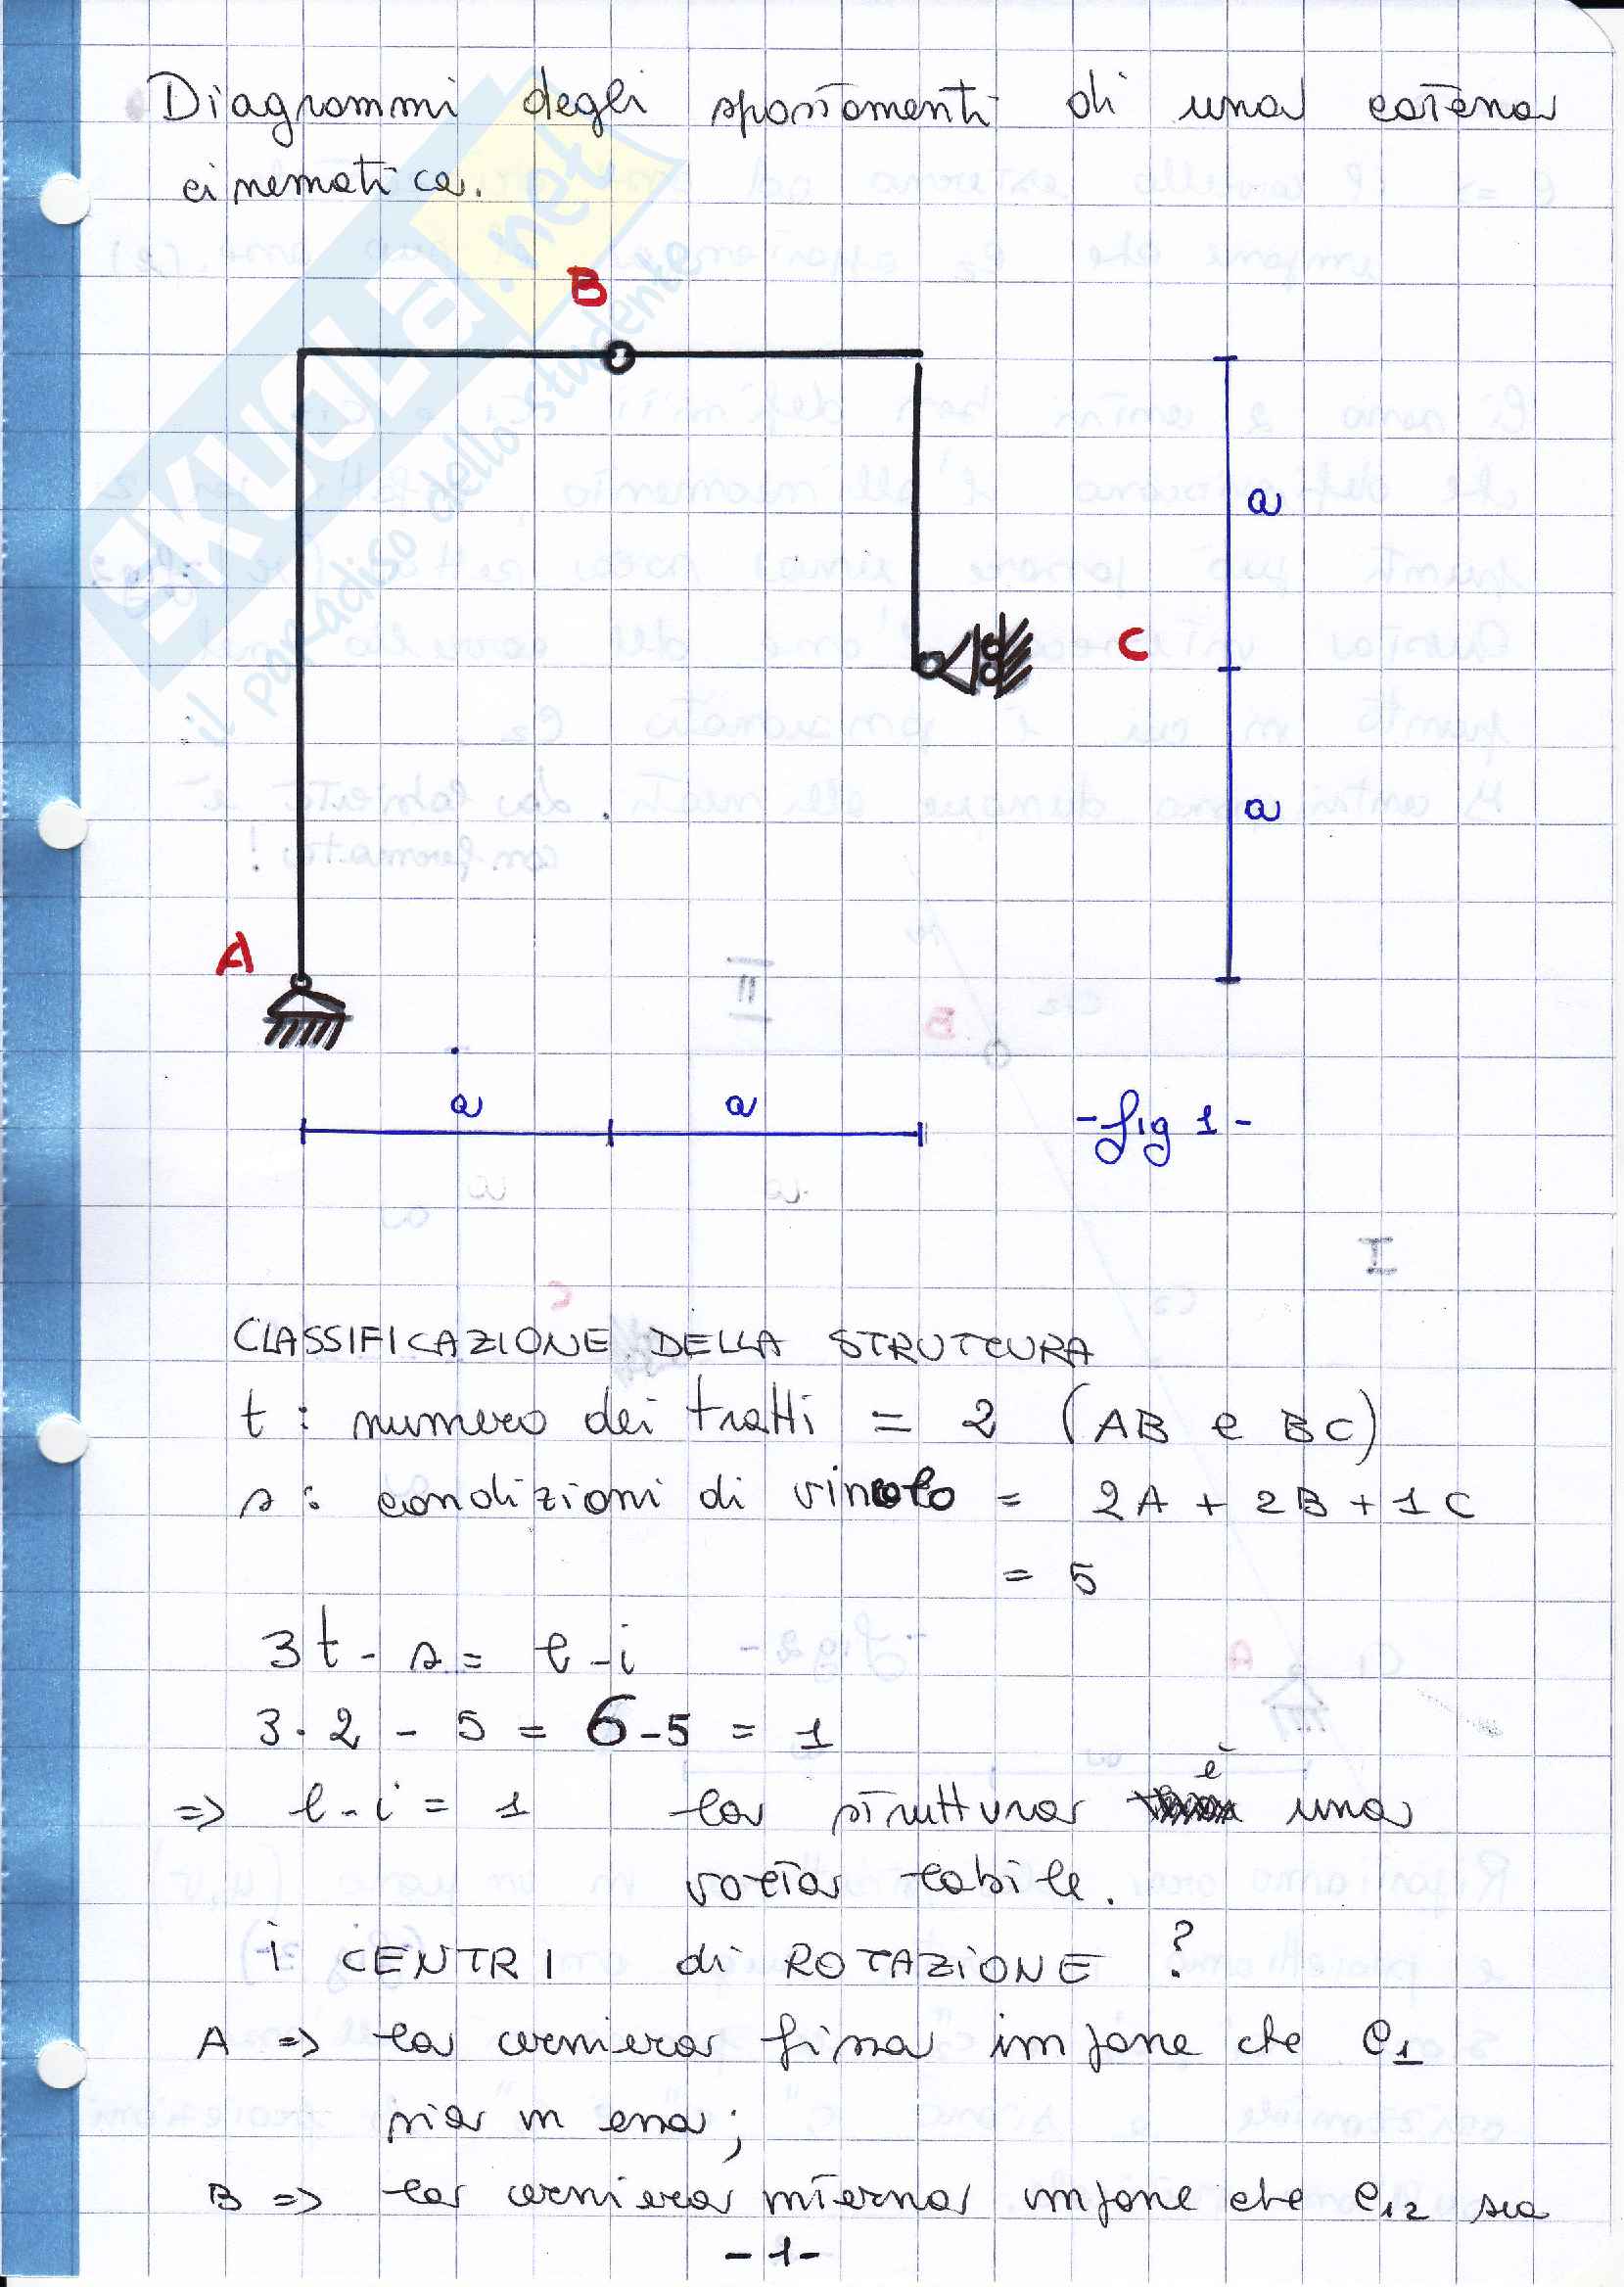 Diagrammi degli spostamenti di una catena
cinematica.
SKUOLA.net
il paradiso dello studente
B
a
C
a
A
a
a
- fig 1 -
CLASSIFICAZIONE DELLA STRUTTURA
t : numero dei tratti = 2 (AB e BC)
s : condizioni di vincolo = 2A + 2B + 1C
= 5
3t - s = l - i
3·2 - 5 = 6 - 5 = 1
=> l - i = 1 la struttura è una
volta labile.
i CENTRI di ROTAZIONE ?
A => la cerniera fissa impone che C1
sia in essa;
B => la cerniera interna impone che C12 sia
- 1 -